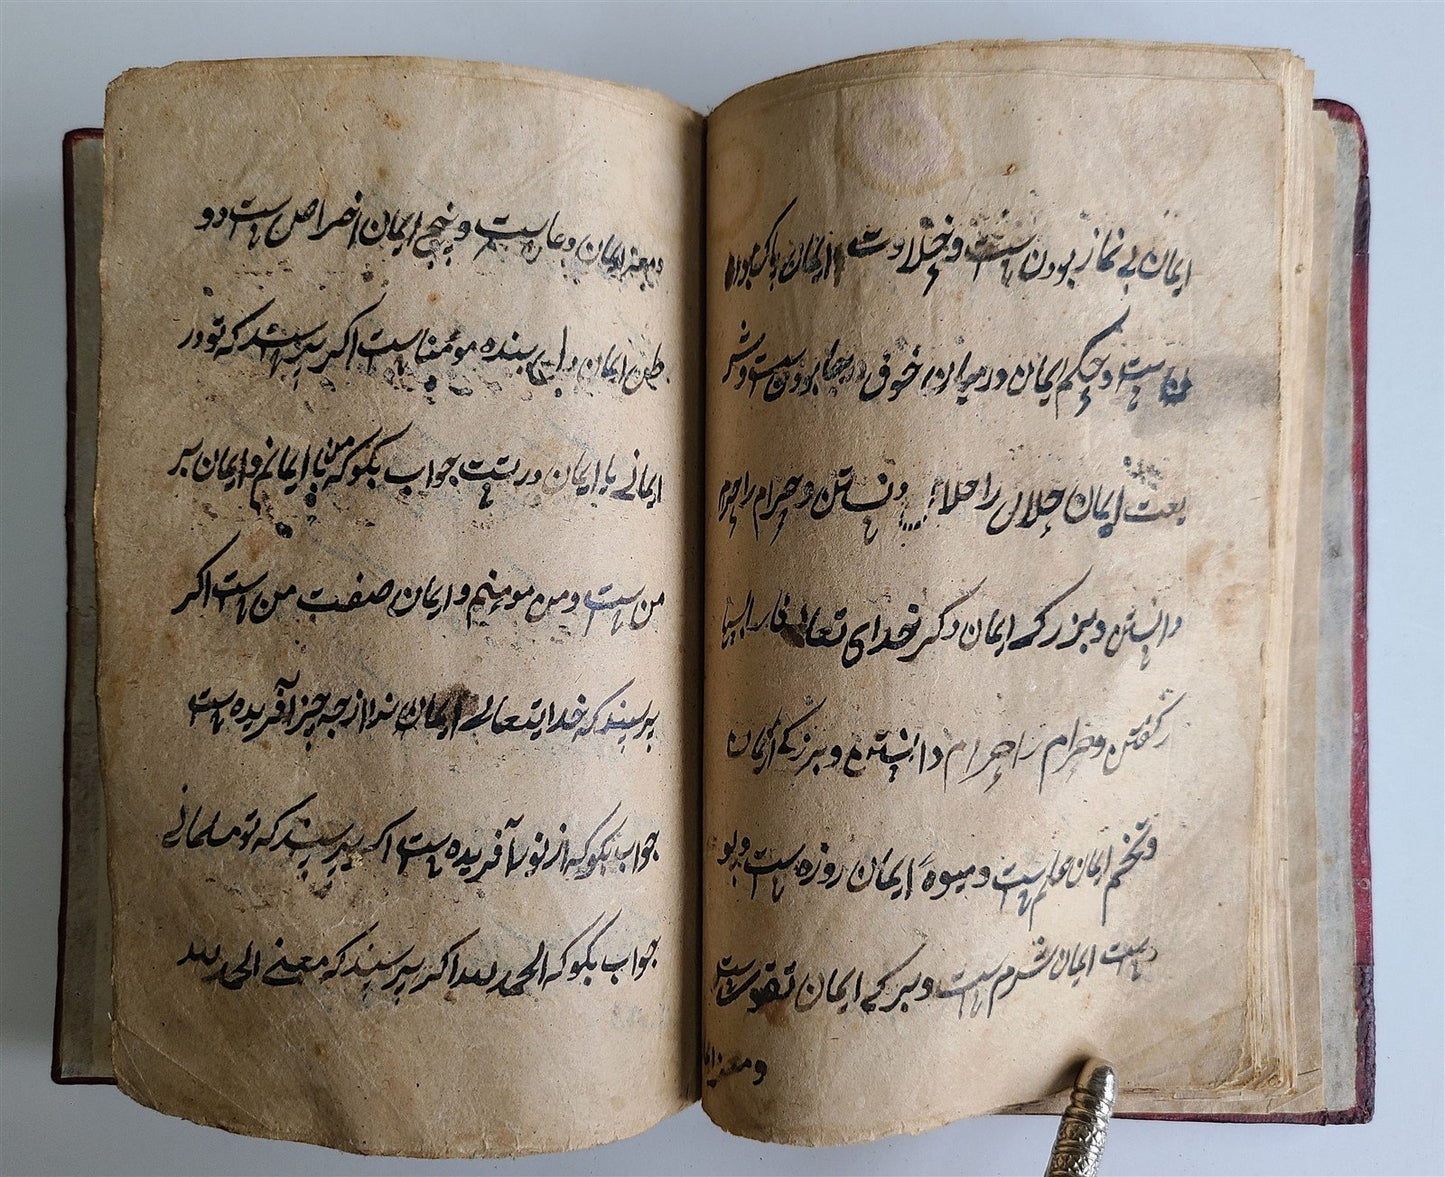 ایمان بی نماز بودن است و حلاوت ایمان پاک بودن
است و حکم ایمان در میان خوف و رجا بودن است و شر
یعت ایمان حلال را حلال دانستن و حرام را حرام
دانستن و بزرکی ایمان ذکر خدای تعالی
کفتن و حرام را حرام دانستن و بزرکی ایمان
و تخم ایمان علم است و میوهٔ ایمان روزه است و پو
ست ایمان شرم است و برک ایمان تقوی است
و مغز ایمان
و مغز ایمان دعا است و بیخ ایمان اخلاص است و و
طن ایمان دل بنده مومن است اکر پرسند که تو در
ایمانی یا ایمان در تست جواب بکو که من با ایمانم و ایمان بر
من است و من مومنم و ایمان صفت من است اکر
پرسند که خدایتعالی ایمان را از چه چیز آفریده است
جواب بکو که از نور آفریده است اکر پرسند که تو مسلمانی
جواب بکو که الحمد لله اکر پرسند که معنی الحمد لله